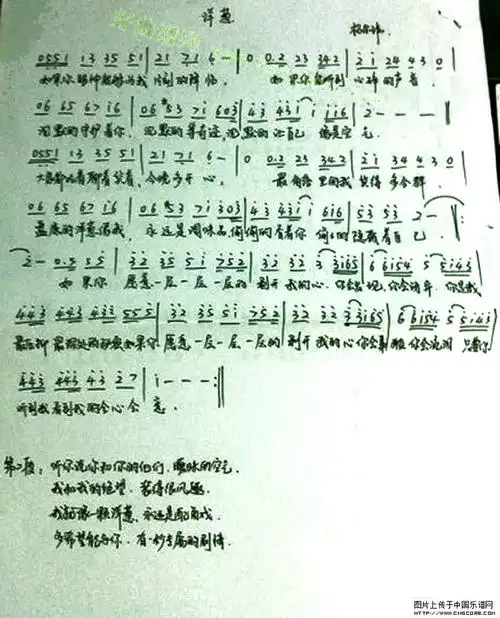 洋葱
杨宗纬
0551 13 35 51 | 21 71 6 - | 0 0.2 23 342 | 2i 24 43 0 |
如果你眼神能够为我 片刻的降临 如果你能听到 心碎的声音
06 65 67 i6 | 06 #53 7i 603 | 43 43i i i i i6 | 2 - - - |
沉默的守护着你 沉默的等奇迹 沉默的让自己 像是空气
0551 13 35 51 | 21 71 6 - | 0 0.2 23 342 | 2i 34 43 0 |
大家都吃着聊着笑着 今晚多开心 最角落里的我 笑得多合群
06 65 67 i6 | 06 #53 7i 303 | 43 43i i 6i6 | 53 53 2 - :
盘底的洋葱像我 永远是调味品 偷偷的看着你 偷偷的隐藏着自己
2 - 0.5 55 | 32 35 5i 752 | 32 32 3 3i65 | 6 6i54 5 5i43 |
如果你 愿意一层一层一层的 剥开我的心 你会发现 你会讶异 你是我
443 443 432 555 | 32 35 5i 752 | 32 32 3 3i65 | 6 6i54 5 5i43 |
最压抑 最深处的秘密 如果你 愿意一层一层一层的 剥开我的心 你会鼻酸 你会流泪 只要你
443 443 43 27 | i - - - :||
听到我看到我的全心全意.
第二段: 听你说你和你的他们, 暧昧的空气
我和我的绝望. 装得很风趣.
我就像一颗洋葱, 永远是配角戏
多希望能与你. 有一秒专属的剧情
图片上传于中国乐谱网
HTTP://WWW.CNSCORE.COM